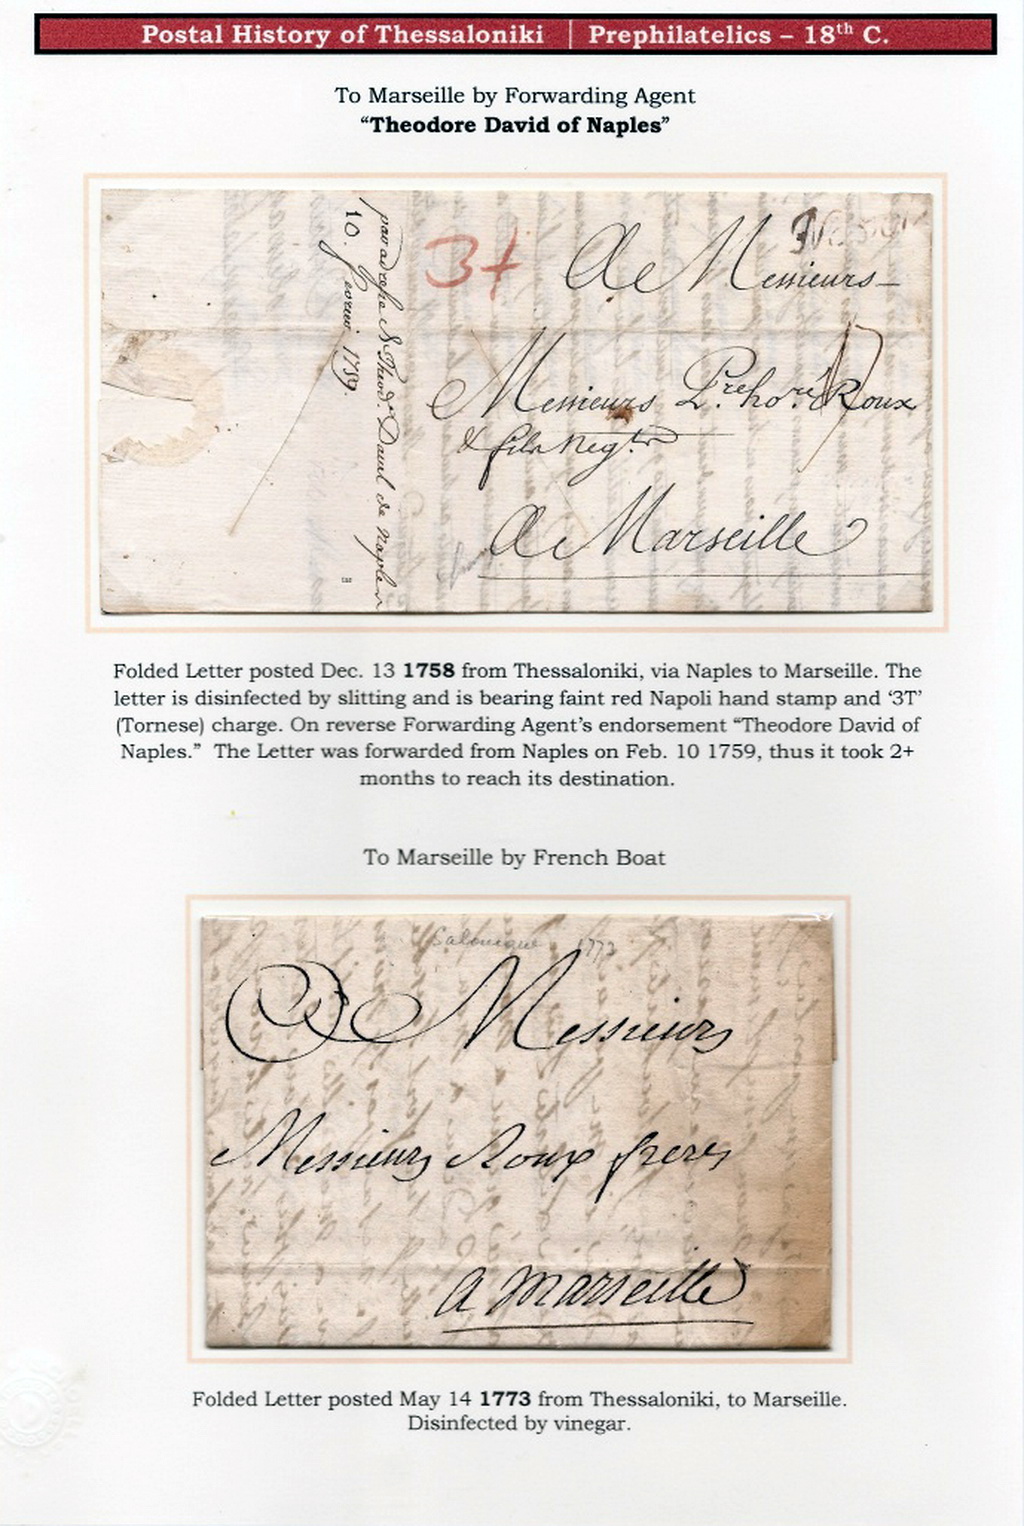 Postal History of Thessaloniki | Prephilatelics – 18th C.
To Marseille by Forwarding Agent
“Theodore David of Naples”
3+
A Messieurs
Messieurs Pre honré Roux
& fils Negts
A Marseille
par adresse S Theodr David de Naples
10. fevrier 1759.
Folded Letter posted Dec. 13 1758 from Thessaloniki, via Naples to Marseille. The
letter is disinfected by slitting and is bearing faint red Napoli hand stamp and ‘3T’
(Tornese) charge. On reverse Forwarding Agent’s endorsement “Theodore David of
Naples.” The Letter was forwarded from Naples on Feb. 10 1759, thus it took 2+
months to reach its destination.
To Marseille by French Boat
Salonique 1773
A Messieurs
Messieurs Roux freres
a Marseille
Folded Letter posted May 14 1773 from Thessaloniki, to Marseille.
Disinfected by vinegar.